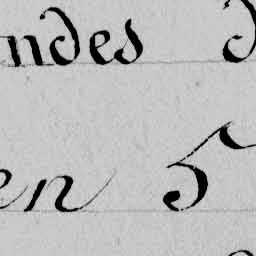 ndes
en 5